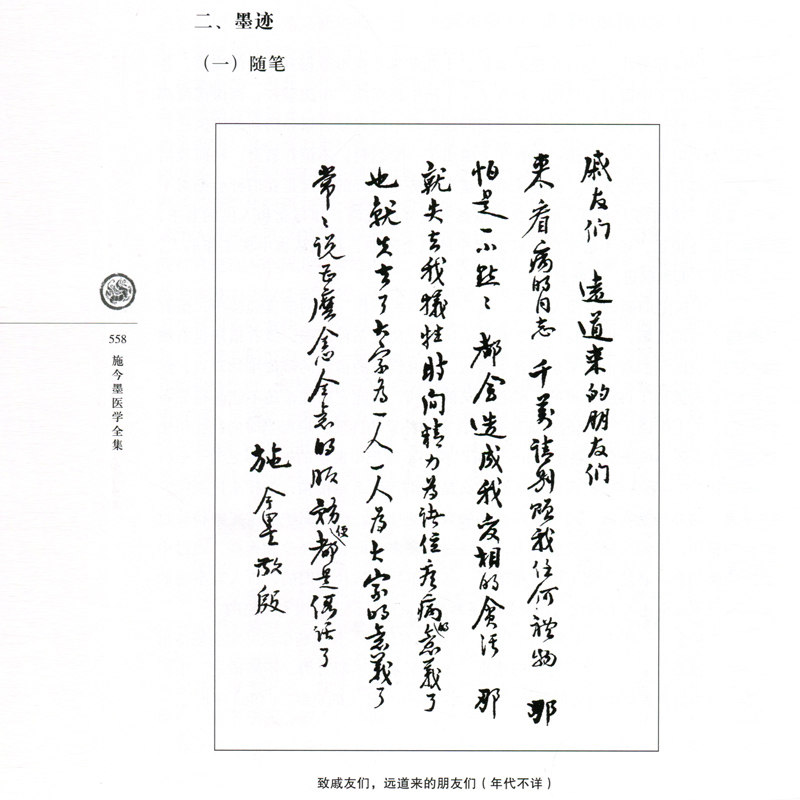 二、墨迹
（一）随笔
戚友们 遠道来的朋友们
来看病的同志 千萬请别赐我任何禮物 那
怕是一小點〻 都会造成我变相的貪污 那
就失去我犧牲時间精力为诸位病的意義了
也就失去了大家为一人一人为大家的意義了
常〻说甚麼全心全意的服務便都是假话了
施今墨敬啟
558
施今墨医学全集
致戚友们，远道来的朋友们（年代不详）